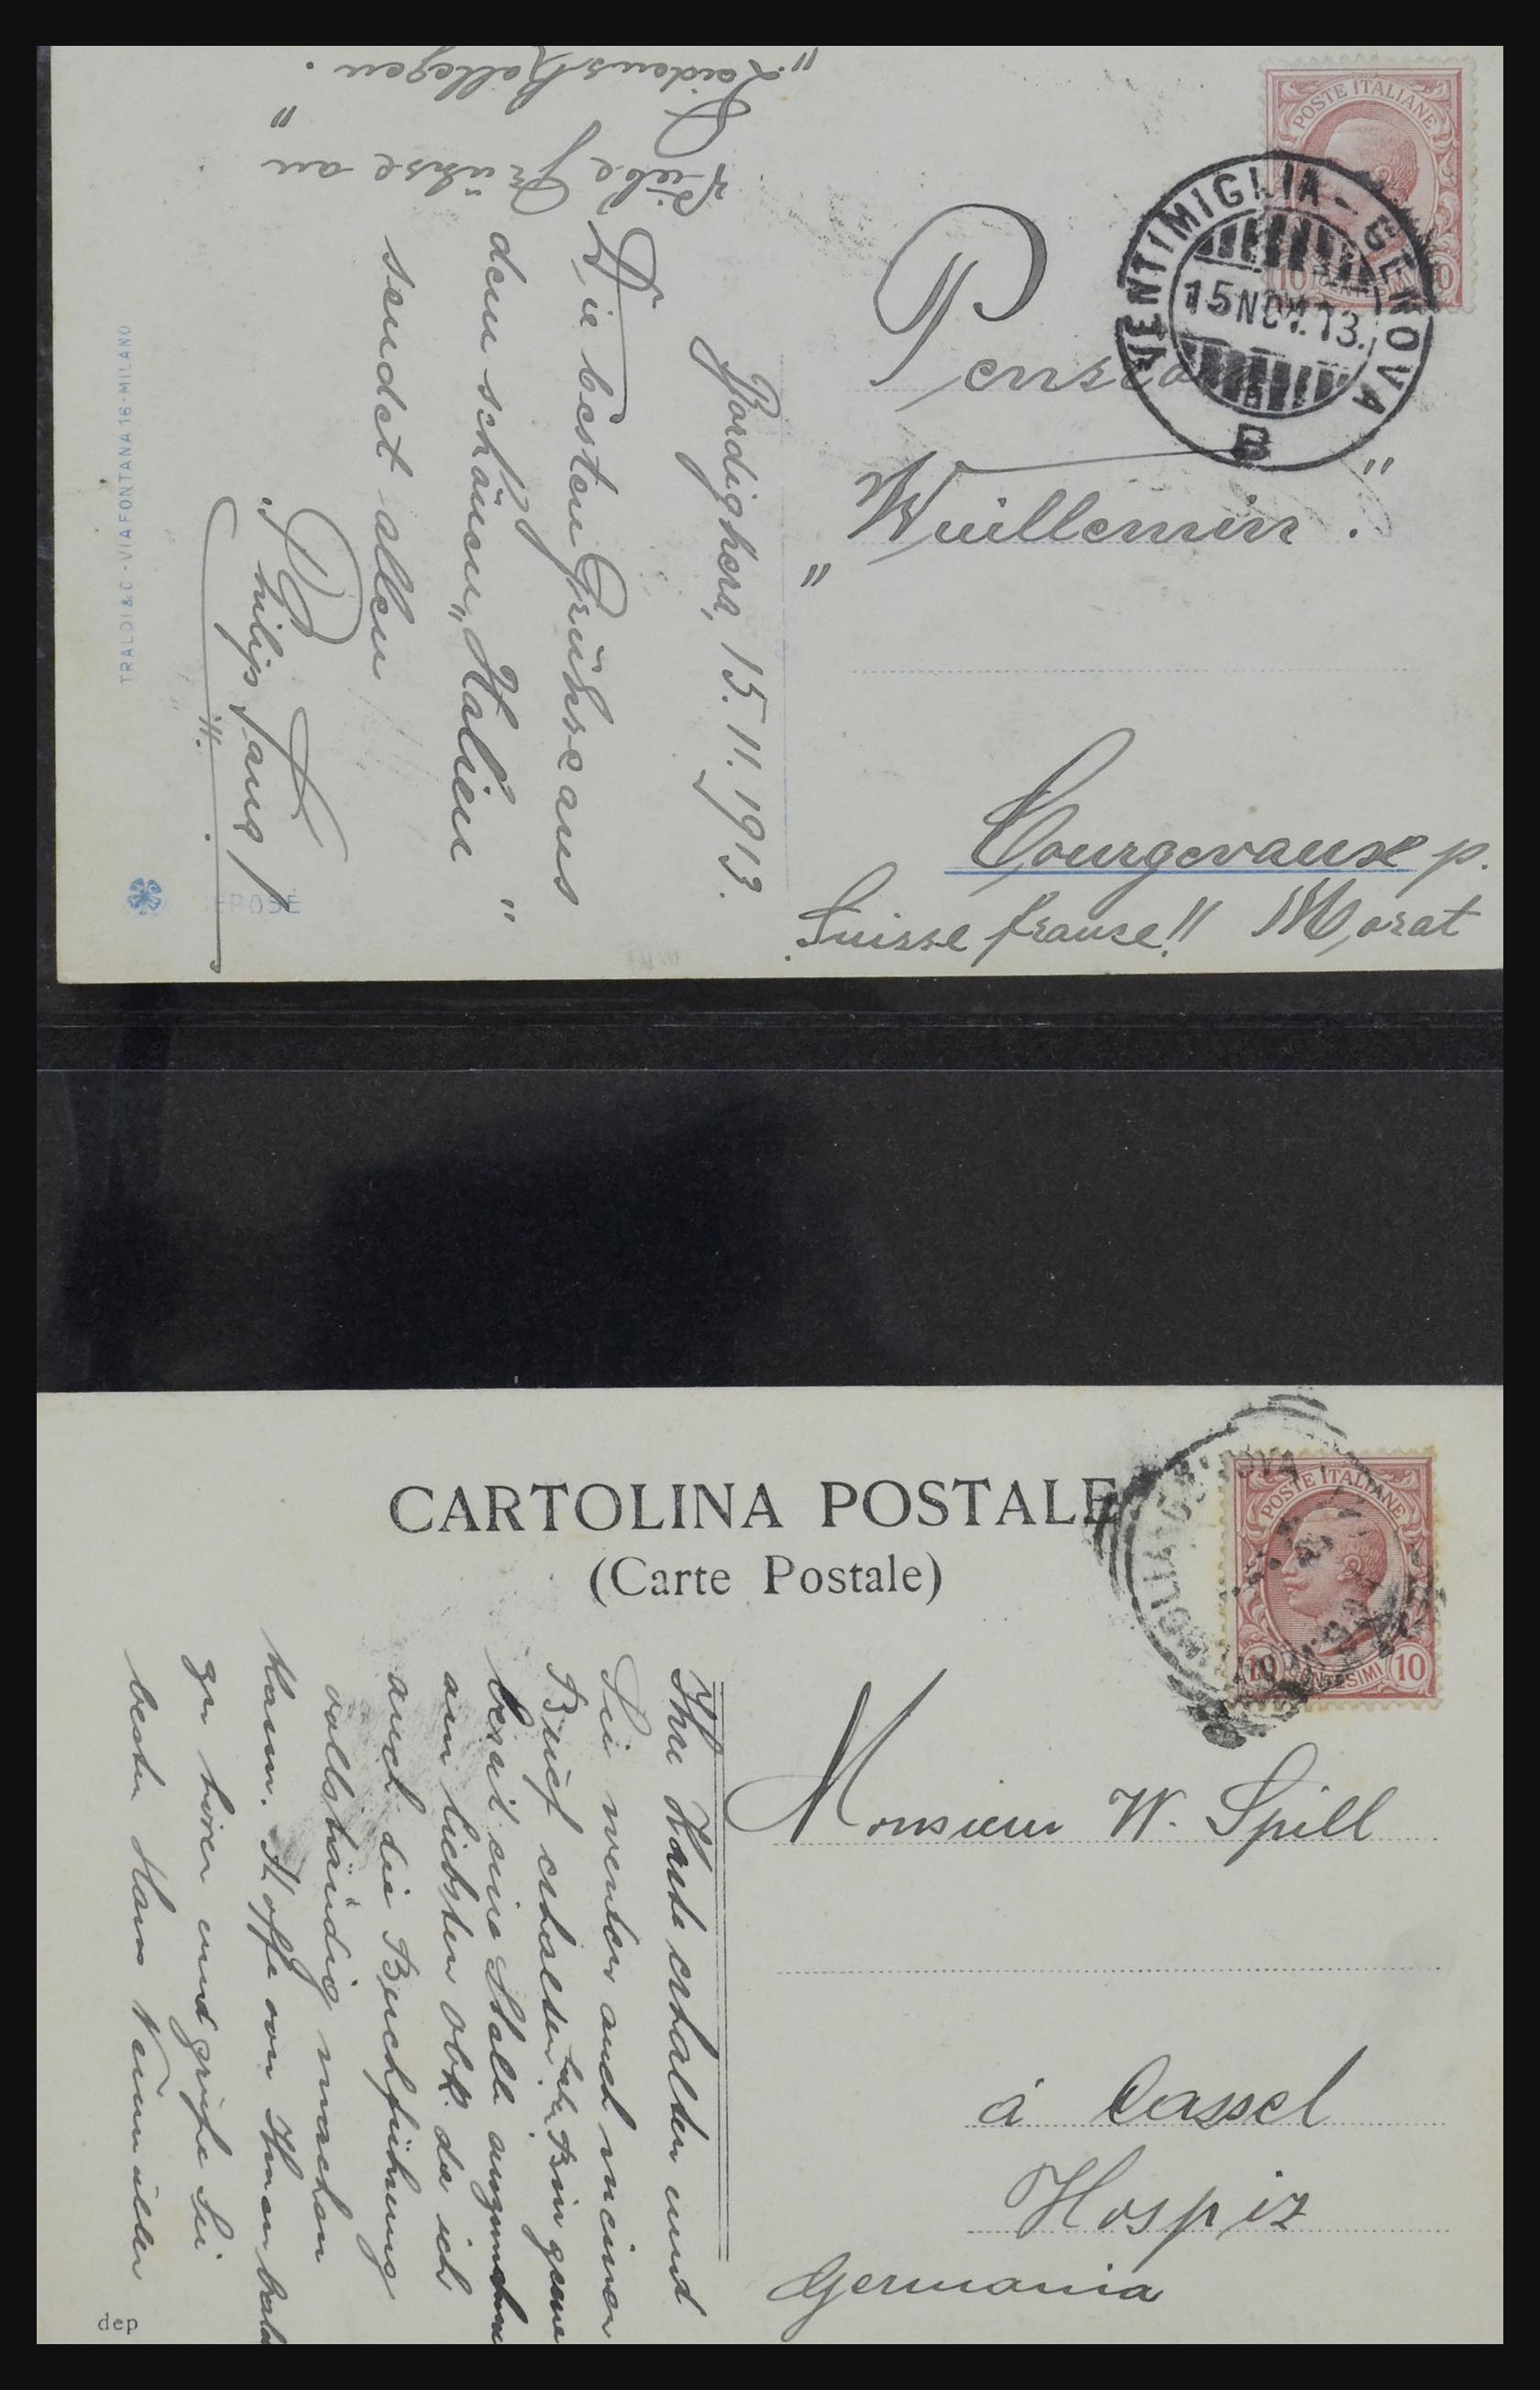 Liebe Grüsse an
"Leidenskollegen".
POSTE ITALIANE
10
VENTIMIGLIA - GENOVA
15 NOV. 13.
B
Pension
"Wuillemin".
Courgevaux p.
Morat
Suisse franse!!
Bordighera, 15.11.1913.
Die besten Grühse aus
dem schönen „Italien"
sendet allen
Philip Lang
TRALDI & C - VIA FONTANA 16 - MILANO
DEPOSE
CARTOLINA POSTALE
(Carte Postale)
POSTE ITALIANE
10 CENTESIMI 10
Monsieur W. Spill
à Cassel
Hospiz
Germania
Ihre Karte erhalten und
Sie werden auch meinen
Brief erhalten habe. Bin gerne
bereit eine Stelle anzunehmen
am liebsten obk. da ich
auch die Buchführung
vollständig machen
kann. Hoffe von Ihnen bald
zu hören und grüße Sie
bestens Hans
dep